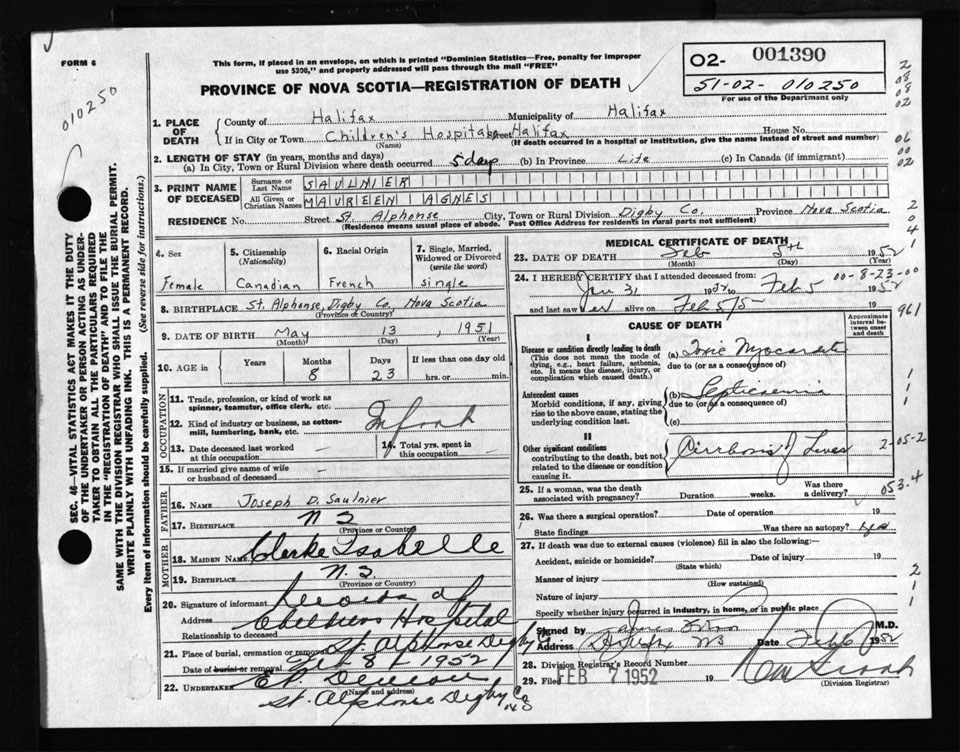 FORM 6
This form, if placed in an envelope, on which is printed "Dominion Statistics—Free, penalty for improper
use $300," and properly addressed will pass through the mail "FREE"
02- 001390
51-02-010250
For use of the Department only
010250
PROVINCE OF NOVA SCOTIA—REGISTRATION OF DEATH
1. PLACE OF DEATH
County of Halifax Municipality of Halifax
If in City or Town Children's Hospital Street Halifax House No.
(Name) (If death occurred in a hospital or institution, give the name instead of street and number)
2. LENGTH OF STAY (in years, months and days)
(a) In City, Town or Rural Division where death occurred 5 days (b) In Province Life (c) In Canada (if immigrant)
3. PRINT NAME OF DECEASED
Surname or Last Name SAULNIER
All Given or Christian Names MAUREEN AGNES
RESIDENCE No. Street St. Alphonse City, Town or Rural Division Digby Co. Province Nova Scotia
(Residence means usual place of abode. Post Office Address for residents in rural parts not sufficient)
4. Sex
Female
5. Citizenship (Nationality)
Canadian
6. Racial Origin
French
7. Single, Married, Widowed or Divorced (write the word)
single
8. BIRTHPLACE St. Alphonse, Digby Co, Nova Scotia
(Province or Country)
9. DATE OF BIRTH May 13, 1951
(Month) (Day) (Year)
10. AGE in
Years Months Days If less than one day old
8 23 hrs. or min.
OCCUPATION
11. Trade, profession, or kind of work as
spinner, teamster, office clerk, etc.
12. Kind of industry or business, as cotton-
mill, lumbering, bank, etc.
Infant
13. Date deceased last worked
at this occupation —
14. Total yrs. spent in
this occupation —
15. If married give name of wife
or husband of deceased —
FATHER
16. NAME Joseph D. Saulnier
17. BIRTHPLACE N S
(Province or Country)
MOTHER
18. MAIDEN NAME Clarke Isabelle
19. BIRTHPLACE N.S.
(Province or Country)
20. Signature of informant Records of
Address Childrens Hospital
Relationship to deceased
21. Place of burial, cremation or removal St. Alphonse Digby Co
Date of burial or removal Feb 8 / 1952
22. UNDERTAKER
(Name and address)
St. Alphonse Digby Co NS
MEDICAL CERTIFICATE OF DEATH
23. DATE OF DEATH Feb 5th 1952
(Month) (Day) (Year)
24. I HEREBY CERTIFY that I attended deceased from 00-8-23-00
Jan 31 1952 to Feb 5 1952
and last saw her alive on Feb 5/52 19
CAUSE OF DEATH
Approximate interval between onset and death
I
Disease or condition directly leading to death
(This does not mean the mode of
dying, e.g., heart failure, asthenia,
etc. It means the disease, injury, or
complication which caused death.)
(a) Toxic Myocarditis
due to (or as a consequence of)
Antecedent causes
Morbid conditions, if any, giving
rise to the above cause, stating the
underlying condition last.
(b) Septicaemia
due to (or as a consequence of)
(c)
II
Other significant conditions
contributing to the death, but not
related to the disease or condition
causing it.
Cirrhosis of Liver
25. If a woman, was the death
associated with pregnancy? Duration weeks. Was there
a delivery?
26. Was there a surgical operation? Date of operation 19
State findings Was there an autopsy? Yes
27. If death was due to external causes (violence) fill in also the following:—
Accident, suicide or homicide? Date of injury 19
(State which)
Manner of injury
(How sustained)
Nature of injury
Specify whether injury occurred in industry, in home, or in public place
Signed by James M.D.
Address Halifax NS Date Feb 6 1952
28. Division Registrar's Record Number
29. Filed FEB 7 1952 19
(Division Registrar)
2 08 08 02
06 00 02
2 0 0 4
961
2-05-2
053.4
2 1 1
SEC. 46—VITAL STATISTICS ACT MAKES IT THE DUTY
OF THE UNDERTAKER OR PERSON ACTING AS UNDER-
TAKER TO OBTAIN ALL THE PARTICULARS REQUIRED
IN THE "REGISTRATION OF DEATH" AND TO FILE THE
SAME WITH THE DIVISION REGISTRAR WHO SHALL ISSUE THE BURIAL PERMIT.
WRITE PLAINLY WITH UNFADING INK. THIS IS A PERMANENT RECORD.
Every item of information should be carefully supplied. (See reverse side for instructions.)